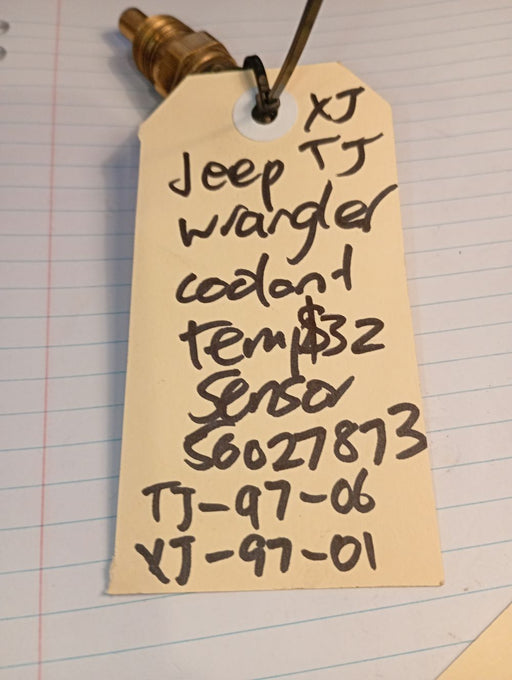 XJ
TJ
Jeep
wrangler
coolant
temp $32
Sensor
56027873
TJ-97-06
XJ-97-01